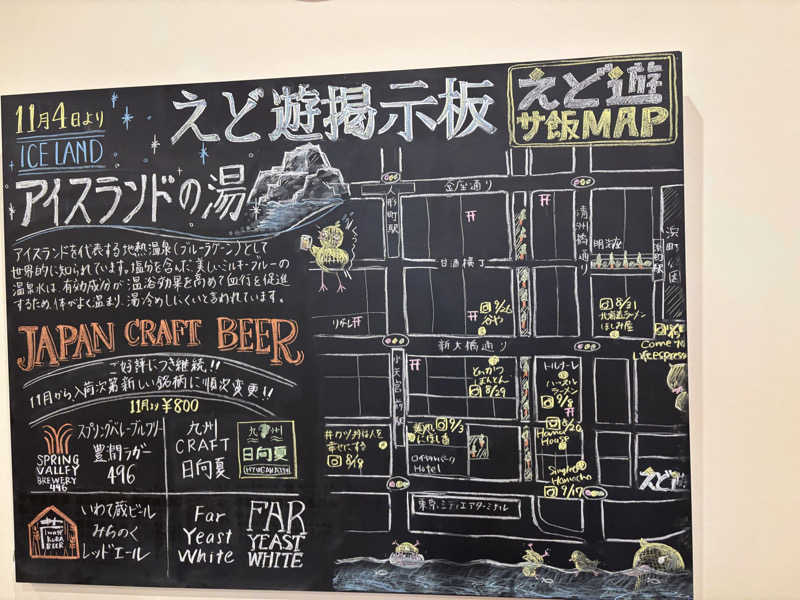 11月4日より
ICELAND
アイスランドの湯
えど遊掲示板
えど遊
サ飯MAP
アイスランドを代表する地熱温泉(ブルーラグーン)として
世界的に知られています。塩分を含んだ、美しいミルキーブルーの
温泉水は、有効成分が温浴効果を高めて血行を促進
するため、体がよく温まり、湯冷めしにくいと言われています。
JAPAN CRAFT BEER
ご好評につき継続!!
11月から入荷次第新しい銘柄に順次変更!!
11月より ¥800
SPRING
VALLEY
BREWERY
496
スプリングバレーブルワリー
豊潤ラガー
496
九州
CRAFT
日向夏
九州
日向夏
HYUGANATSU
IWATE
KURA
BEER
いわて蔵ビール
みちのく
レッドエール
Far
Yeast
White
FAR
YEAST
WHITE
金座通り
形町駅
清洲橋通り
浜町公園
浜町駅
明治座
甘酒横丁
リチレ
9/26
谷や
8/31
北海道ラーメン
ほしみ屋
新大橋通り
Come on
Lifespresso
小天宮前駅
とんかつ
8/29
トルナーレ
ハッスル
ラーメン
9/8
8/20
Hano
House
Singha
Hamacho
9/17
丼カツ丼は人を
幸せにする
8/8
9/3
にぼし香
ロイヤルパーク
Hotel
東京シティエアターミナル
えど